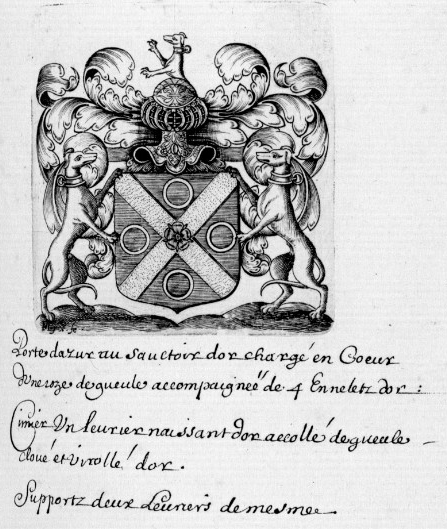 Porte dazur au Sauctoir dor chargé en Coeur
dvne roze de gueule accompaigneé de 4 Enneletz dor :
Cimier Vn leurier naissant dor accollé de gueule -
cloué et virollé dor .
Supportz deux Leuriers de mesmee